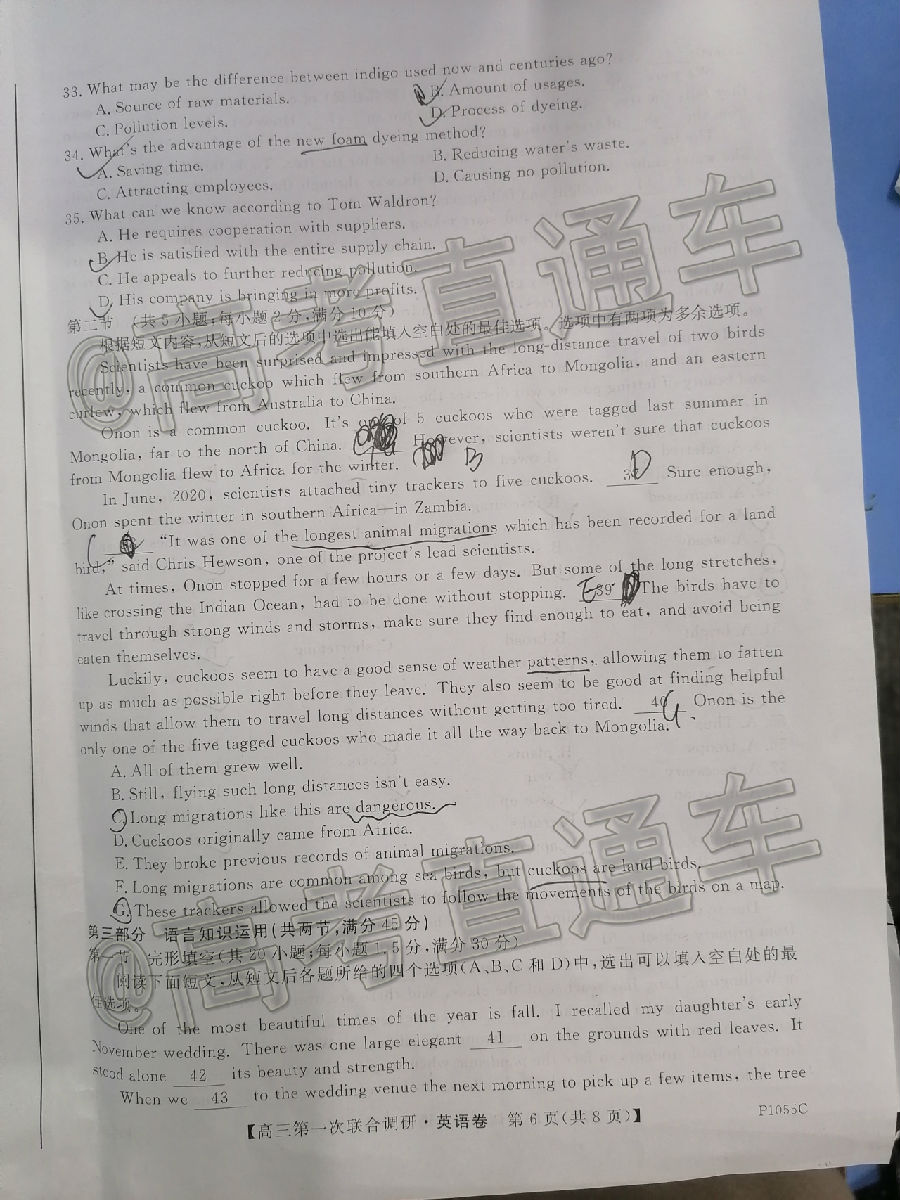 33. What may be the difference between indigo used now and centuries ago?
A. Source of raw materials. B. Amount of usages.
C. Pollution levels. D. Process of dyeing.
34. What's the advantage of the new foam dyeing method?
A. Saving time. B. Reducing water's waste.
C. Attracting employees. D. Causing no pollution.
35. What can we know according to Tom Waldron?
A. He requires cooperation with suppliers.
B. He is satisfied with the entire supply chain.
C. He appeals to further reducing pollution.
D. His company is bringing in more profits.
第二节 (共5小题;每小题2分,满分10分)
根据短文内容,从短文后的选项中选出能填入空白处的最佳选项。选项中有两项为多余选项。
Scientists have been surprised and impressed with the long-distance travel of two birds
recently, a common cuckoo which flew from southern Africa to Mongolia, and an eastern
curlew, which flew from Australia to China.
Onon is a common cuckoo. It's one of 5 cuckoos who were tagged last summer in
Mongolia, far to the north of China. B However, scientists weren't sure that cuckoos
from Mongolia flew to Africa for the winter.
In June, 2020, scientists attached tiny trackers to five cuckoos. D Sure enough,
Onon spent the winter in southern Africa—in Zambia.
"It was one of the longest animal migrations which has been recorded for a land
bird," said Chris Hewson, one of the project's lead scientists.
At times, Onon stopped for a few hours or a few days. But some of the long stretches,
like crossing the Indian Ocean, had to be done without stopping. E 39 The birds have to
travel through strong winds and storms, make sure they find enough to eat, and avoid being
eaten themselves.
Luckily, cuckoos seem to have a good sense of weather patterns, allowing them to fatten
up as much as possible right before they leave. They also seem to be good at finding helpful
winds that allow them to travel long distances without getting too tired. 40 G Onon is the
only one of the five tagged cuckoos who made it all the way back to Mongolia.
A. All of them grew well.
B. Still, flying such long distances isn't easy.
C. Long migrations like this are dangerous.
D. Cuckoos originally came from Africa.
E. They broke previous records of animal migrations.
F. Long migrations are common among sea birds, but cuckoos are land birds.
G. These trackers allowed the scientists to follow the movements of the birds on a map.
第三部分 语言知识运用(共两节,满分45分)
第一节 完形填空(共20小题;每小题1.5分,满分30分)
阅读下面短文,从短文后各题所给的四个选项(A、B、C和D)中,选出可以填入空白处的最
佳选项。
One of the most beautiful times of the year is fall. I recalled my daughter's early
November wedding. There was one large elegant 41 on the grounds with red leaves. It
stood alone 42 its beauty and strength.
When we 43 to the wedding venue the next morning to pick up a few items, the tree
【高三第一次联合调研·英语卷 第6页(共8页)】 P1055C
@高考直通车
@高考直通车